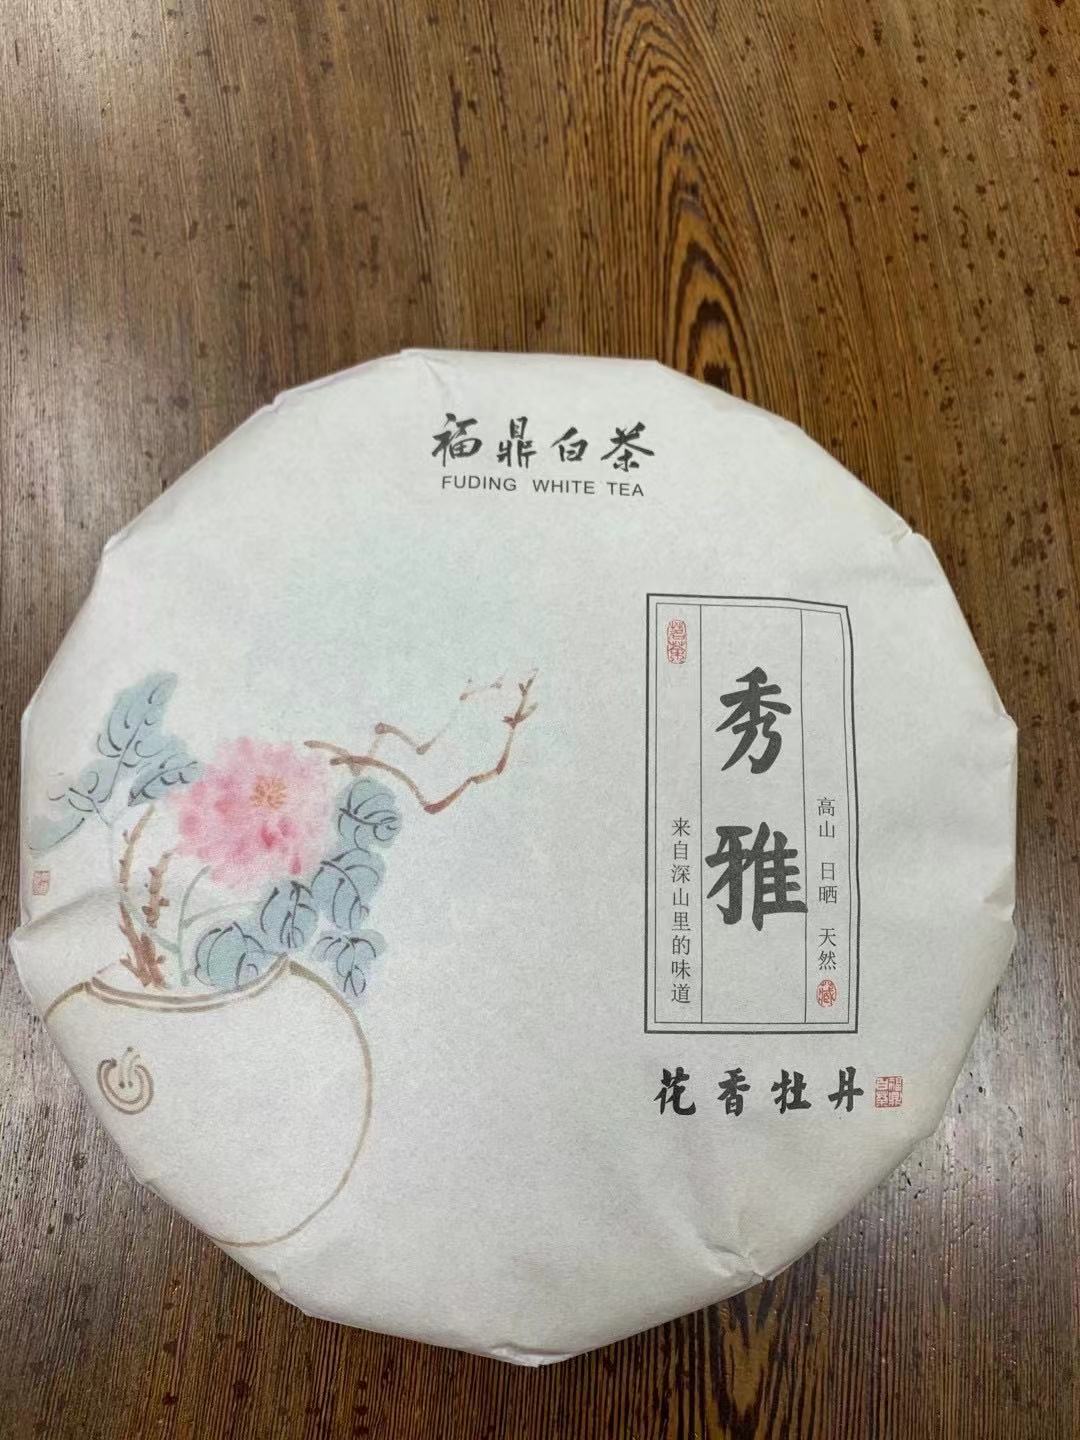 福鼎白茶
FUDING WHITE TEA
高山 日晒 天然
藏
秀雅
来自深山里的味道
花香牡丹
福鼎白茶